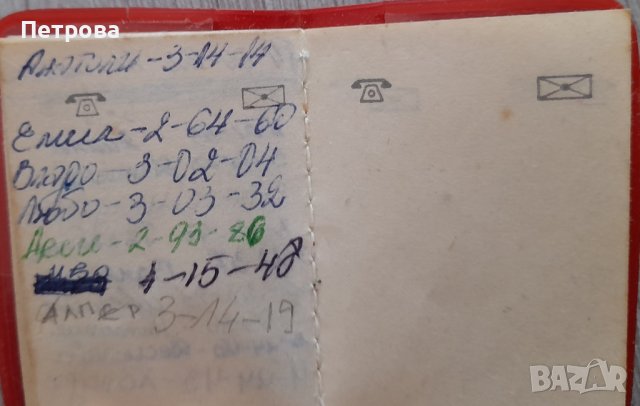 Петрова
Анатоли - 3-14-14
Елиса - 2-64-60
Владо - 3-02-04
Любо - 3-03-32
2-93-86
1-15-48
АЛПЕР 3-14-19
BAZAR
bg